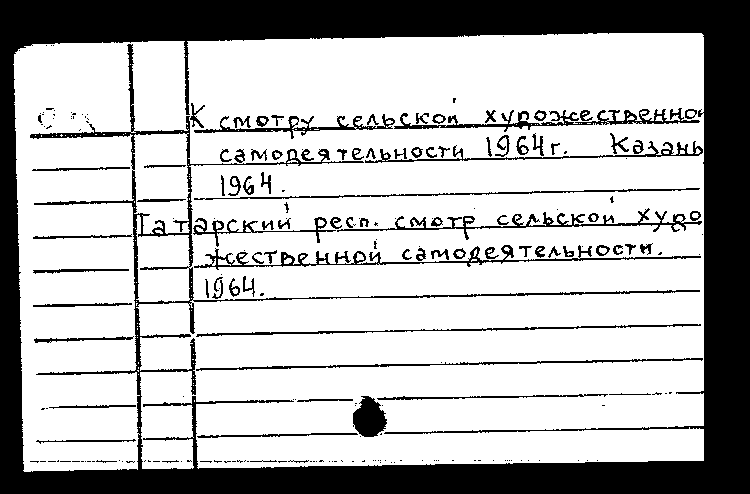 К смотру сельской художественно
самодеятельности 1964г. Казань
1964.
Татарский респ. смотр сельской худо
жественной самодеятельности.
1964.